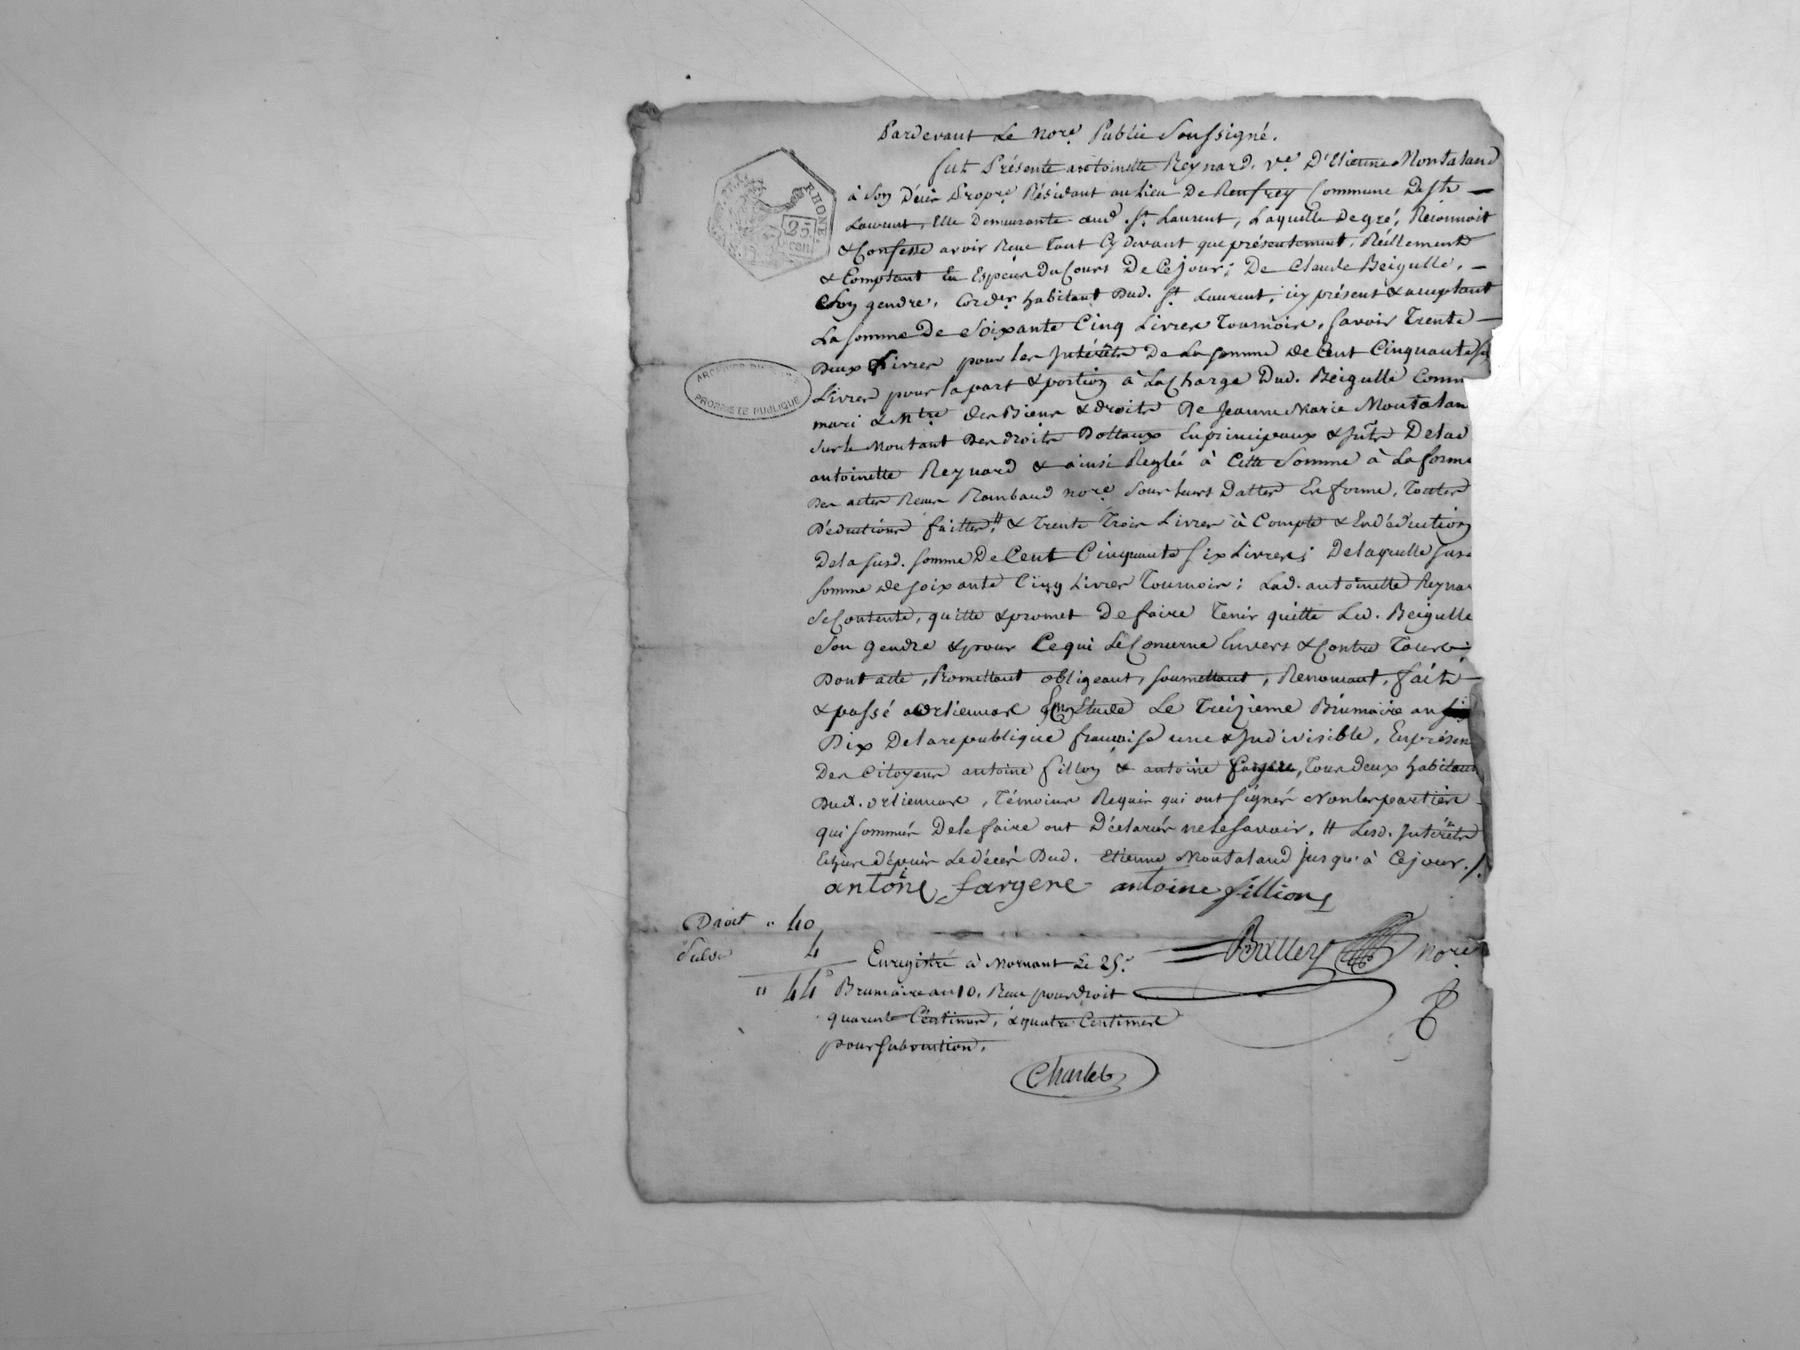 Pardevant Le nore. Public Soussigné.
fut Présente antoinette Reynard, ve. D'Etienne Montaland
à Son Décès Propre. Résidant au Lieu De Renfrey Commune De St. —
Laurent, Elle Demeurante aud. St. Laurent, Laquelle De gré, Reconnoit
& Confesse avoir Reçu Tant Cy devant que présentement, Réellement
& Comptant En Espèces Du Cours De Ce jour; De Claude Beigulle, —
Son gendre, Corder. habitant Dud. St. Laurent, icy présent & acceptant
La somme De Soixante Cinq Livres Tournois, Savoir Trente —
Deux Livres pour les Intérêts De La somme De Cent Cinquante Si
Livres pour la part & portion à La Charge Dud. Beigulle Comm
mari & Mtre. Des Biens & droits De Jeanne Marie Montalan
Sur le Montant Des droits Dottaux En principaux & Ints. De lad
antoinette Reynard & ainsi Reglée à Cette Somme à La forme
Des actes Reçus Rambaud nore. Sous Leurs Dattes En forme, Toutes
Déductions faittes, # & Trente Trois Livres à Compte & En déduction
De la susd. somme De Cent Cinquante Six Livres; De laquelle sus
somme de soixante Cinq Livres Tournois; Lad. antoinette Reynar
Se Contente, quitte & promet De faire Tenir quitte Led. Beigulle
Son gendre & pour Ce qui Le Concerne Envers & Contre Tous
Dont acte, Promettant obligeant, soumettant, Renonçant, fait —
& passé a orlienas Etude Le Treizième Brumaire an
Dix De la republique française une & Indivisible, En présen
Des Citoyens antoine fillon & antoine fargere, Tous deux habitans
Dud. orlienas, Témoins Requis qui ont signés Non les parties
qui sommés De le faire ont Déclarés ne le savoir. # Lesd. Intérêts
Echus dépuis Le décès Dud. Etienne Montaland jusqu'à Ce jour./.
antoine fargere antoine fillion
Droit " 40
Subv. 4
" 44
nore
Enregistré à Mornant Le 25.
Brumaire an 10. Reçu pour droit
quarente Centimes, & quatre Centimes
pour subvention.
Charlet
RHONE.
25
cen.
ARCHIVES DU RHONE
PROPRIETE PUBLIQUE